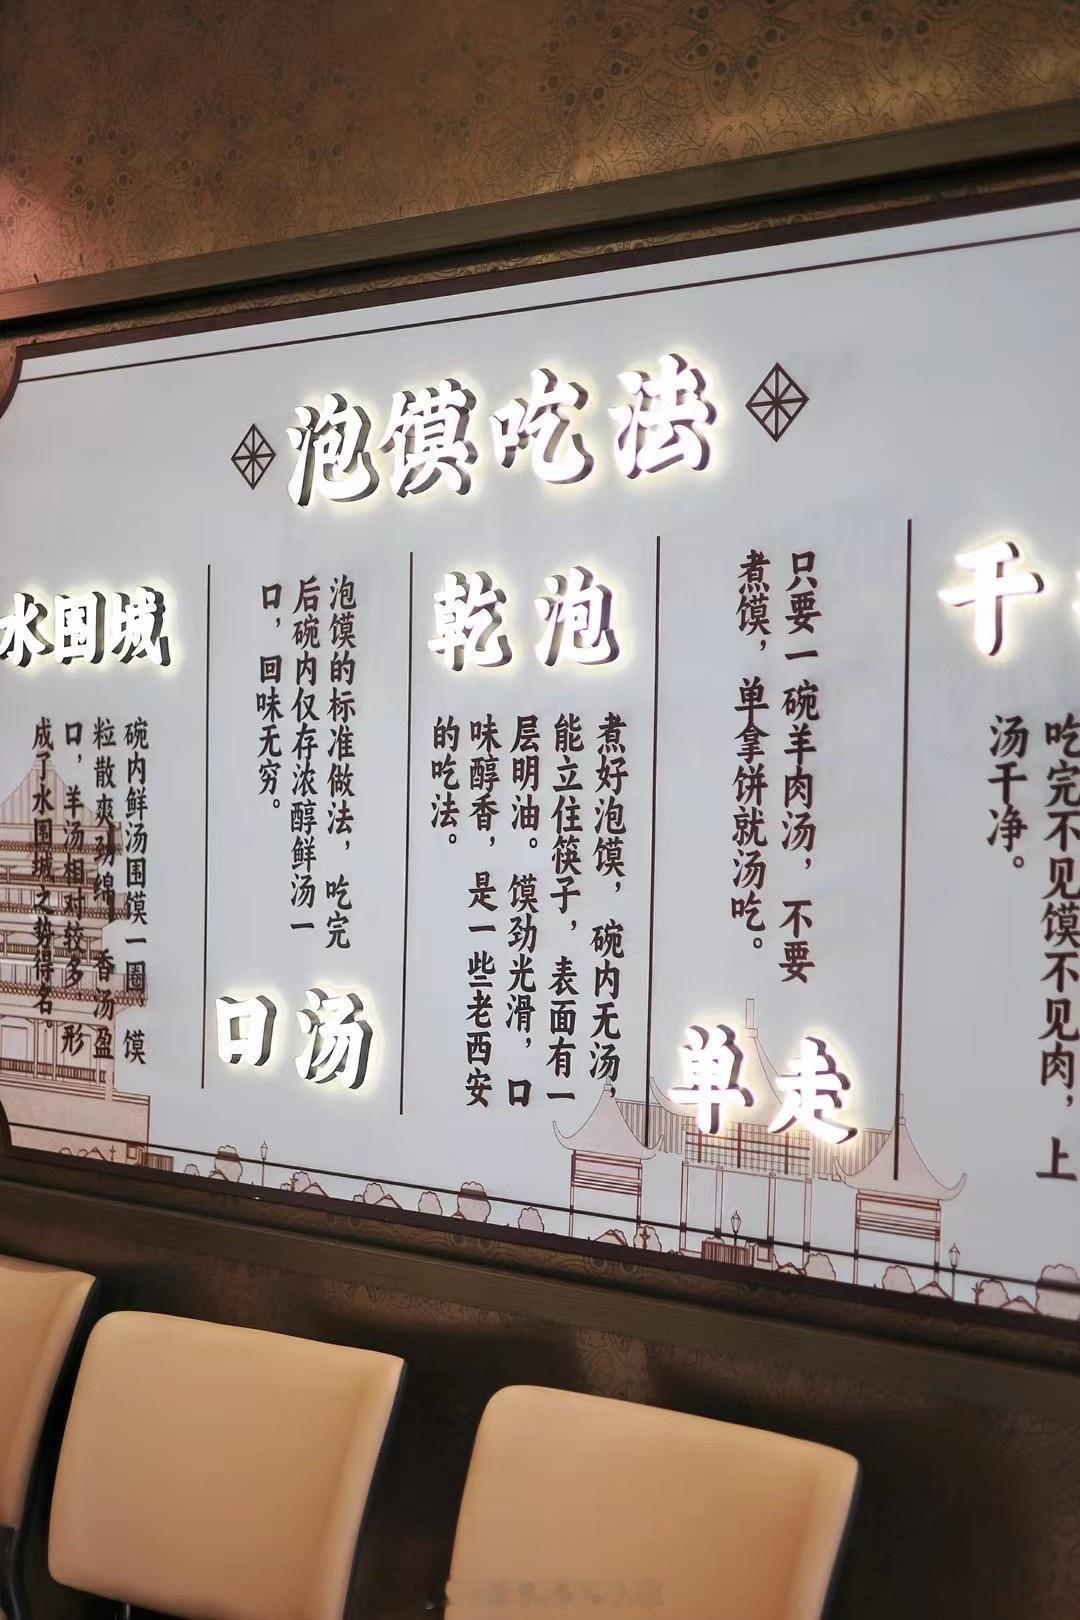 泡馍吃法
水围城
碗内鲜汤围馍一圈。馍
粒散爽劲绵，香汤盈
口，羊汤相对较多，形
成了水围城之势得名。
泡馍的标准做法，吃完
后碗内仅存浓醇鲜汤一
口，回味无穷。
口汤
乾泡
煮好泡馍，碗内无汤，
能立住筷子，表面有一
层明油。馍劲光滑，口
味醇香，是一些老西安
的吃法。
只要一碗羊肉汤，不要
煮馍，单拿饼就汤吃。
单走
干
吃完不见馍不见肉，上
汤干净。